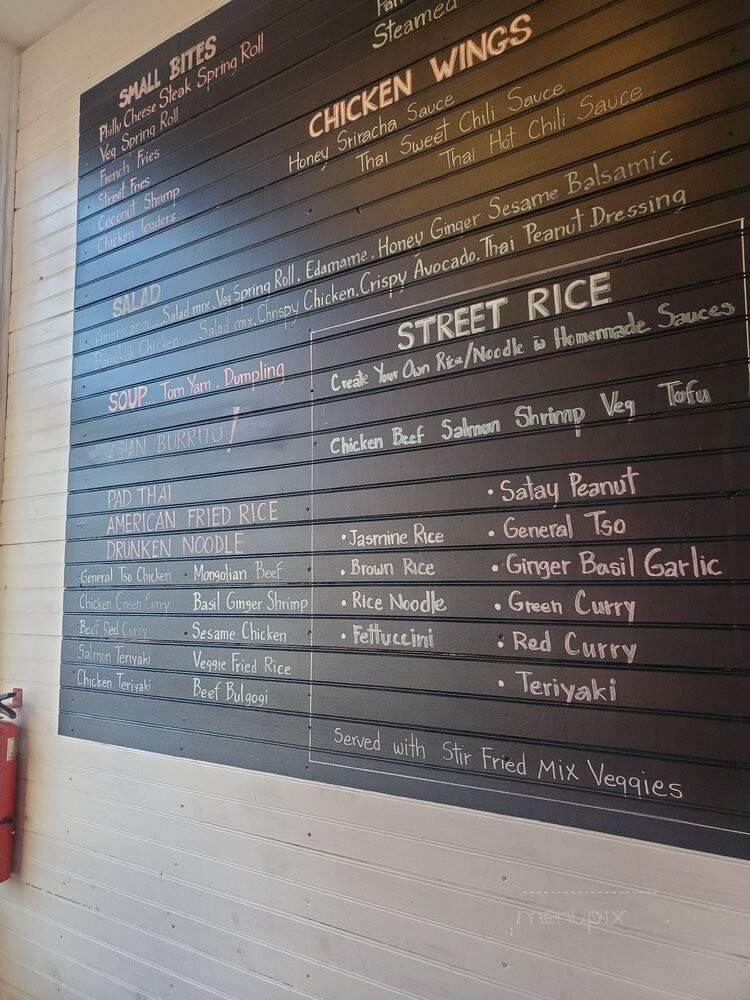 SMALL BITES
Philly Cheese Steak Spring Roll
Veg Spring Roll
French Fries
Street Fries
Coconut Shrimp
Chicken Tenders
Steamed
CHICKEN WINGS
Honey Sriracha Sauce
Thai Sweet Chili Sauce
Thai Hot Chili Sauce
SALAD
Americana.....Salad mix. Veg Spring Roll. Edamame. Honey Ginger Sesame Balsamic
Bangkok Chicken.....Salad mix. Chrispy Chicken. Crispy Avocado. Thai Peanut Dressing
SOUP... Tom Yam. Dumpling
ASIAN BURRITO!
PAD THAI
AMERICAN FRIED RICE
DRUNKEN NOODLE
General Tso Chicken • Mongolian Beef
Chicken Green Curry Basil Ginger Shrimp
Beef Red Curry • Sesame Chicken
Salmon Teriyaki Veggie Fried Rice
Chicken Teriyaki Beef Bulgogi
STREET RICE
Create Your Own Rice/Noodle in Homemade Sauces
Chicken Beef Salmon Shrimp Veg Tofu
• Jasmine Rice
• Brown Rice
• Rice Noodle
• Fettuccini
• Satay Peanut
• General Tso
• Ginger Basil Garlic
• Green Curry
• Red Curry
• Teriyaki
Served with Stir Fried Mix Veggies
menupix